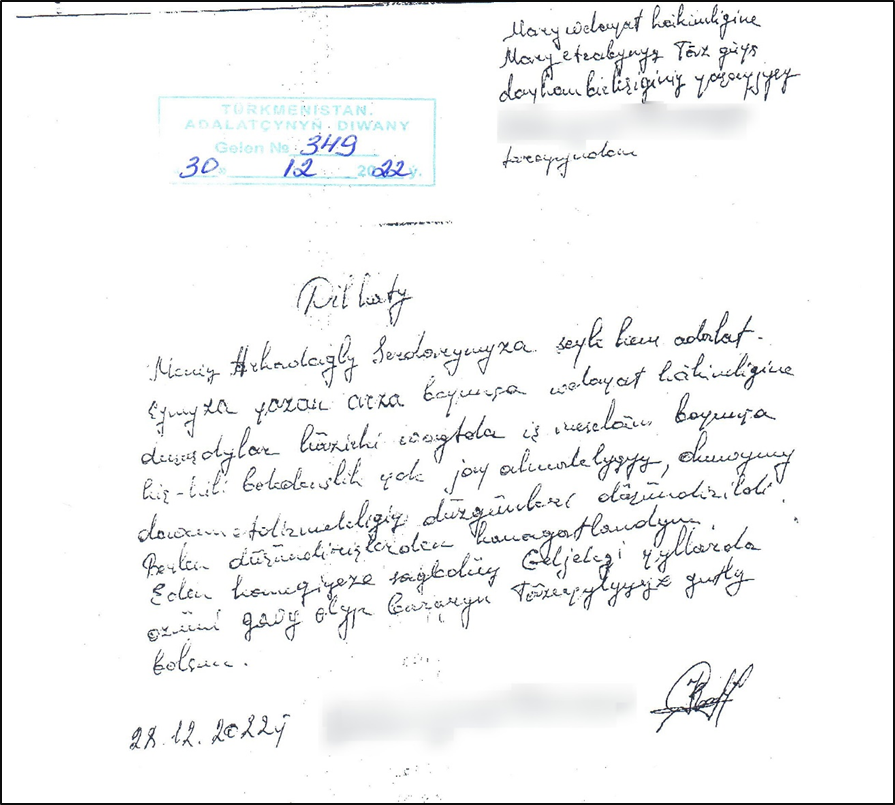 Mary welaýat häkimligine
Mary etrabynyň Täze güýç
daýhan birleşiginiň ýaşaýjysy
tarapyndan
TÜRKMENISTAN.
ADALATÇYNYŇ DIWANY
Gelen № 349
30 12 2022ý.
Dil haty
Meniň Arkadagly Serdarymyza şeýle hem adalat-
çymyza ýazan arza boýunça welaýat häkimligine
duşuşdylar häzirki wagtda iş meseläm boýunça
hiç-hili bökdençlik ýok jaý almaklygyň,
dowam etdirmekligiň düzgünleri düşündirildi.
Berlen düşündirişlerden kanagatlandym.
Eden kömegiňize sagboluň Geljekgi ýyllarda
özümi gowy alyp bararyn Täze ýylyňyz gutly
bolsun.
28.12.2022ý